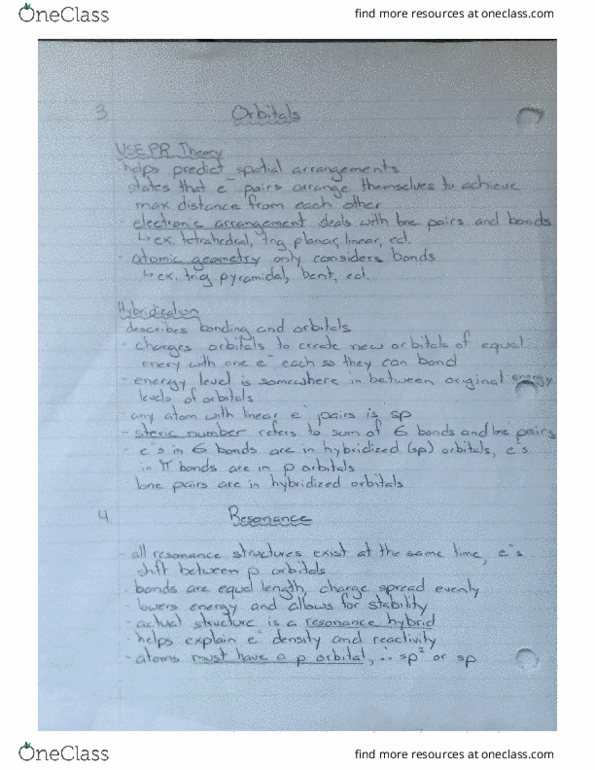 OneClass
find more resources at oneclass.com
3 Orbitals
VSEPR Theory
helps predict spatial arrangements
states that e⁻ pairs arrange themselves to achieve
max distance from each other
- electronic arrangement deals with lone pairs and bonds
↳ ex. tetrahedral, trig planar, linear, ect.
- atomic geometry only considers bonds
↳ ex. trig pyramidal, bent, ect.
Hybridization
describes bonding and orbitals
- changes orbitals to create new orbitals of equal
energy with one e⁻ each so they can bond
- energy level is somewhere in between original energy
levels of orbitals
- any atom with linear e⁻ pairs is sp
- steric number refers to sum of σ bonds and lone pairs
- e⁻s in σ bonds are in hybridized (sp) orbitals, e⁻s
in π bonds are in p orbitals
lone pairs are in hybridized orbitals
4 Resonance
- all resonance structures exist at the same time, e⁻s
shift between p orbitals
- bonds are equal length, charge spread evenly
lowers energy and allows for stability
- actual structure is a resonance hybrid
- helps explain e⁻ density and reactivity
- atoms must have a p orbital, ∴ sp² or sp
OneClass
find more resources at oneclass.com